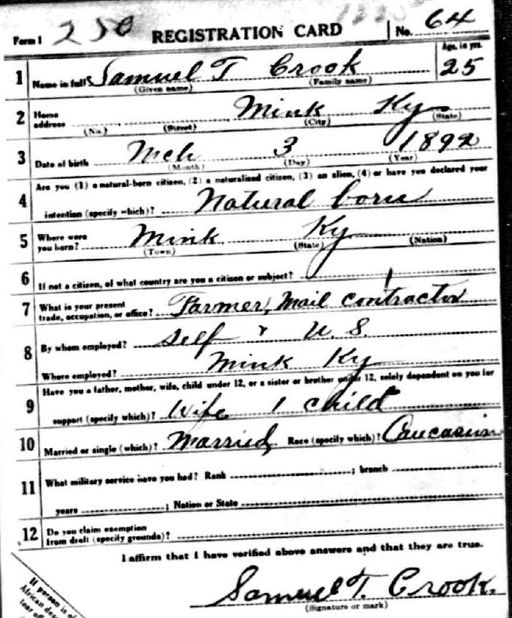 Form 1 250 REGISTRATION CARD No. 64
Age, in yrs.
1 Name in full Samuel T Crook 25
(Given name) (Family name)
2 Home address Mink Ky
(No.) (Street) (City) (State)
3 Date of birth Mch 3 1892
(Month) (Day) (Year)
Are you (1) a natural-born citizen, (2) a naturalized citizen, (3) an alien, (4) or have you declared your
4 intention (specify which)? Natural born
5 Where were you born? Mink Ky
(Town) (State) (Nation)
6 If not a citizen, of what country are you a citizen or subject?
7 What is your present trade, occupation, or office? Farmer, Mail contractor
8 By whom employed? self & U. S
Where employed? Mink Ky
Have you a father, mother, wife, child under 12, or a sister or brother under 12, solely dependent on you for
9 support (specify which)? Wife 1 child
10 Married or single (which)? Married Race (specify which)? Caucasian
11 What military service have you had? Rank ; branch
years ; Nation or State
12 Do you claim exemption from draft (specify grounds)?
I affirm that I have verified above answers and that they are true.
Samuel T. Crook.
(Signature or mark)
If person is of
African